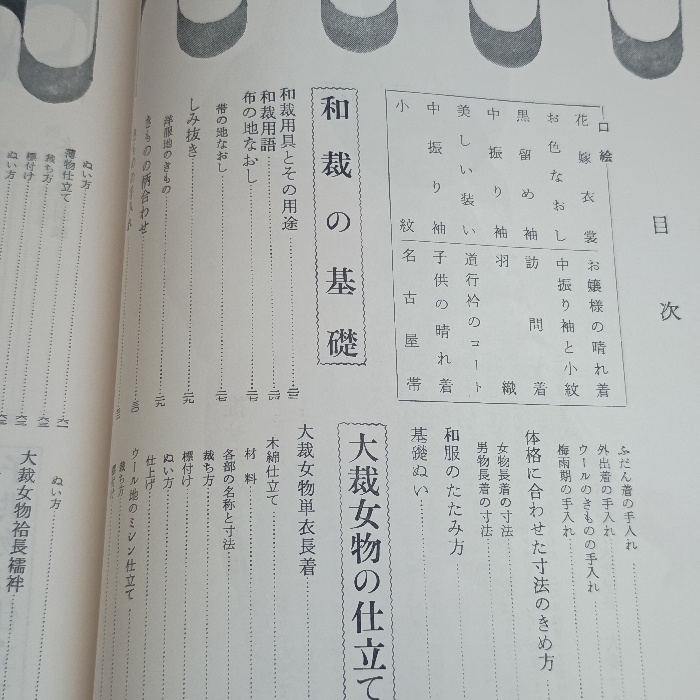 目次
口絵
花嫁衣裳
お色なおし
黒留め袖
中振り袖
美しい装い
中振り袖
小紋
お嬢様の晴れ着
中振り袖と小紋
訪問着
羽織
道行衿のコート
子供の晴れ着
名古屋帯
和裁の基礎
和裁用具とその用途
和裁用語
布の地なおし
帯の地なおし
しみ抜き
洋服地のきもの
きものの柄合わせ
ふだん着の手入れ
外出着の手入れ
ウールのきものの手入れ
梅雨期の手入れ
体格に合わせた寸法のきめ方
女物長着の寸法
男物長着の寸法
和服のたたみ方
基礎ぬい
大裁女物の仕立て
大裁女物単衣長着
木綿仕立て
材料
各部の名称と寸法
裁ち方
標付け
ぬい方
仕上げ
ウール地のミシン仕立て
裁ち方
ぬい方
薄物仕立て
裁ち方
標付け
ぬい方
ぬい方
大裁女物袷長襦袢